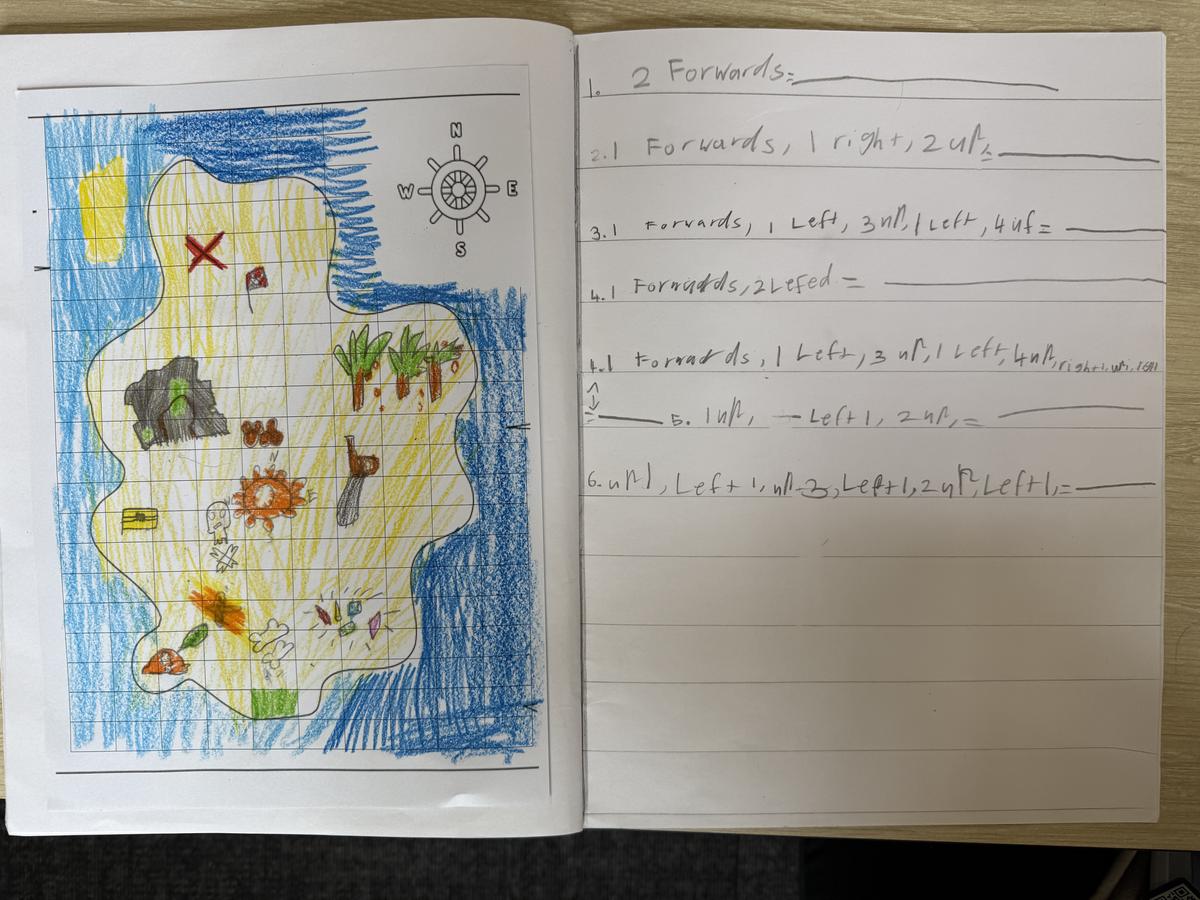 N
W E
S
N
E
1. 2 Forwards=
2.1 Forwards, 1 right, 2 up=
3.1 Forwards, 1 Left, 3 up, 1 Left, 4 up =
4.1 Forwards, 2 Lefed =
4.1 Forwards, 1 Left, 3 up, 1 Left, 4 up, right 1, up 1,
= 5. 1 up, Left 1, 2 up, =
6. up 1, Left 1, up 3, Left 1, 2 up, Left 1, =